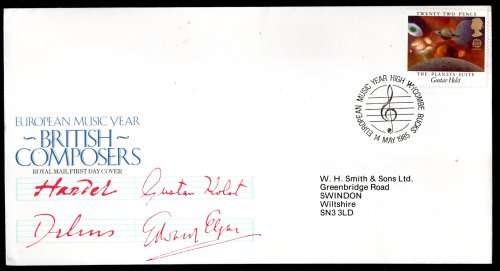 TWENTY TWO PENCE
THE PLANETS SUITE
Gustav Holst
EUROPEAN MUSIC YEAR HIGH WYCOMBE BUCKS
14 MAY 1985
EUROPEAN MUSIC YEAR
~BRITISH~
COMPOSERS
ROYAL MAIL FIRST DAY COVER
Handel
Gustav Holst
Delius
Edward Elgar
W. H. Smith & Sons Ltd.
Greenbridge Road
SWINDON
Wiltshire
SN3 3LD